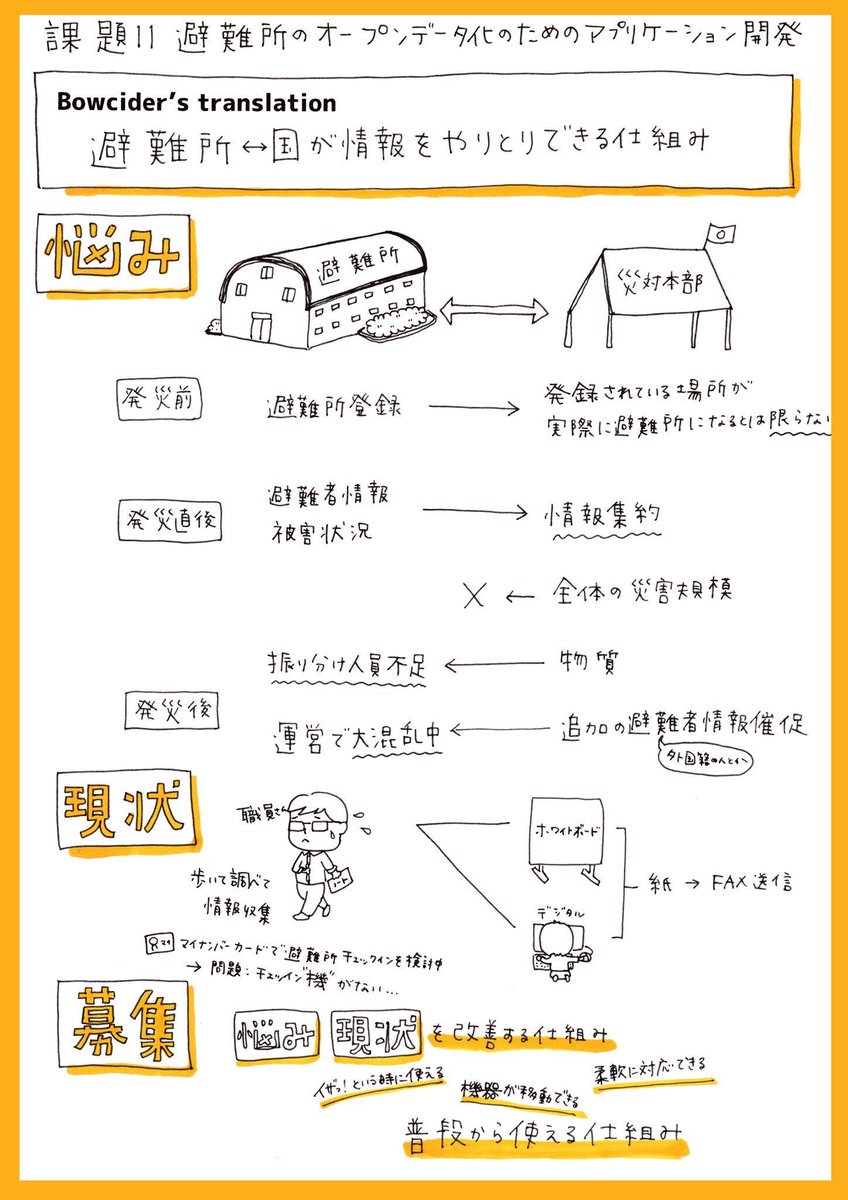 課題11 避難所のオープンデータ化のためのアプリケーション開発
Bowcider's translation
避難所↔国が情報をやりとりできる仕組み
悩み
避難所
災対本部
発災前
避難所登録
発録されている場所が
実際に避難所になるとは限らない
発災直後
避難者情報
被害状況
情報集約
×← 全体の災害規模
発災後
振り分け人員不足
物質
運営で大混乱中
追加の避難者情報催促
外国籍の人とか
現状
職員さん
ノート
歩いて調べて
情報収集
ホワイトボード
デジタル
紙 → FAX送信
マイナンバーカードで避難所チェックインを検討中
→ 問題:チェックイン"機"がない...
募集
悩み 現状 を改善する仕組み
イザっ!という時に使える
機器が移動できる
柔軟に対応できる
普段から使える仕組み